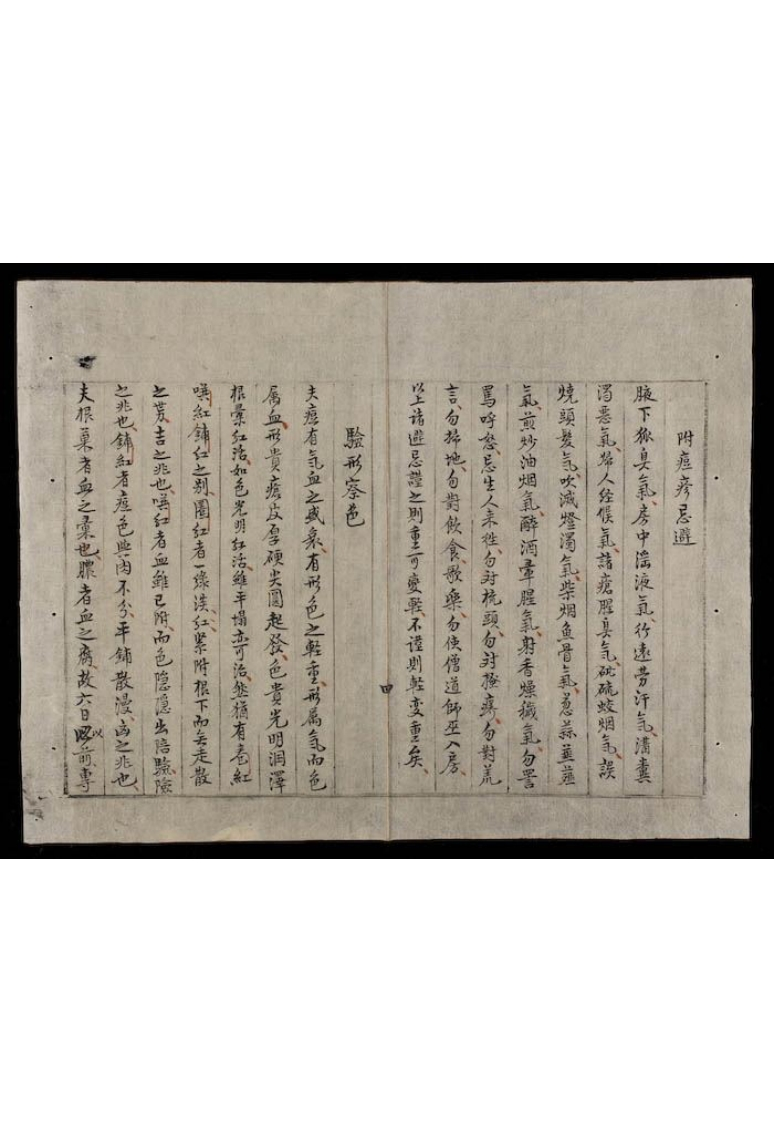 附痘疹忌避
腋下狐臭氣、房中滛液氣、行遠劳汗氣、溝糞
濁惡氣、婦人经候氣、諸瘡腥臭氣、硫蚊烟氣、誤
燒頭髮氣、吹滅燈濁氣、柴烟魚骨氣、葱蒜薤
氣、煎炒油烟氣、醉酒葷腥氣、射香燥穢氣、勿詈
罵呼怒、忌生人来徃、勿对梳頭、勿对搔痒、勿對荒
言、勿掃地、勿對飲食、歌樂、勿使僧道師巫入房、
以上诸避忌謹之則重可變軽、不谨则軽变重矣、
四
驗形察色
夫痘有氣血之盛衰、有形色之軽重、形属氣而色
属血、形貴瘡皮厚硬尖圓起發、色貴光明润澤
根暈红活、如色光明红活、雖平塌亦可治、然猶有圈红
噀红鋪红之别、圈红者一線淡红、緊附根下而無走散
之势、吉之兆也、噀红者血雖已附、而色隱隱出陪驗險
之兆也、鋪红者痘色與肉不分、平鋪散漫、凶之兆也、
夫根窠者血之彙也、膿者血之腐故六日以前、専